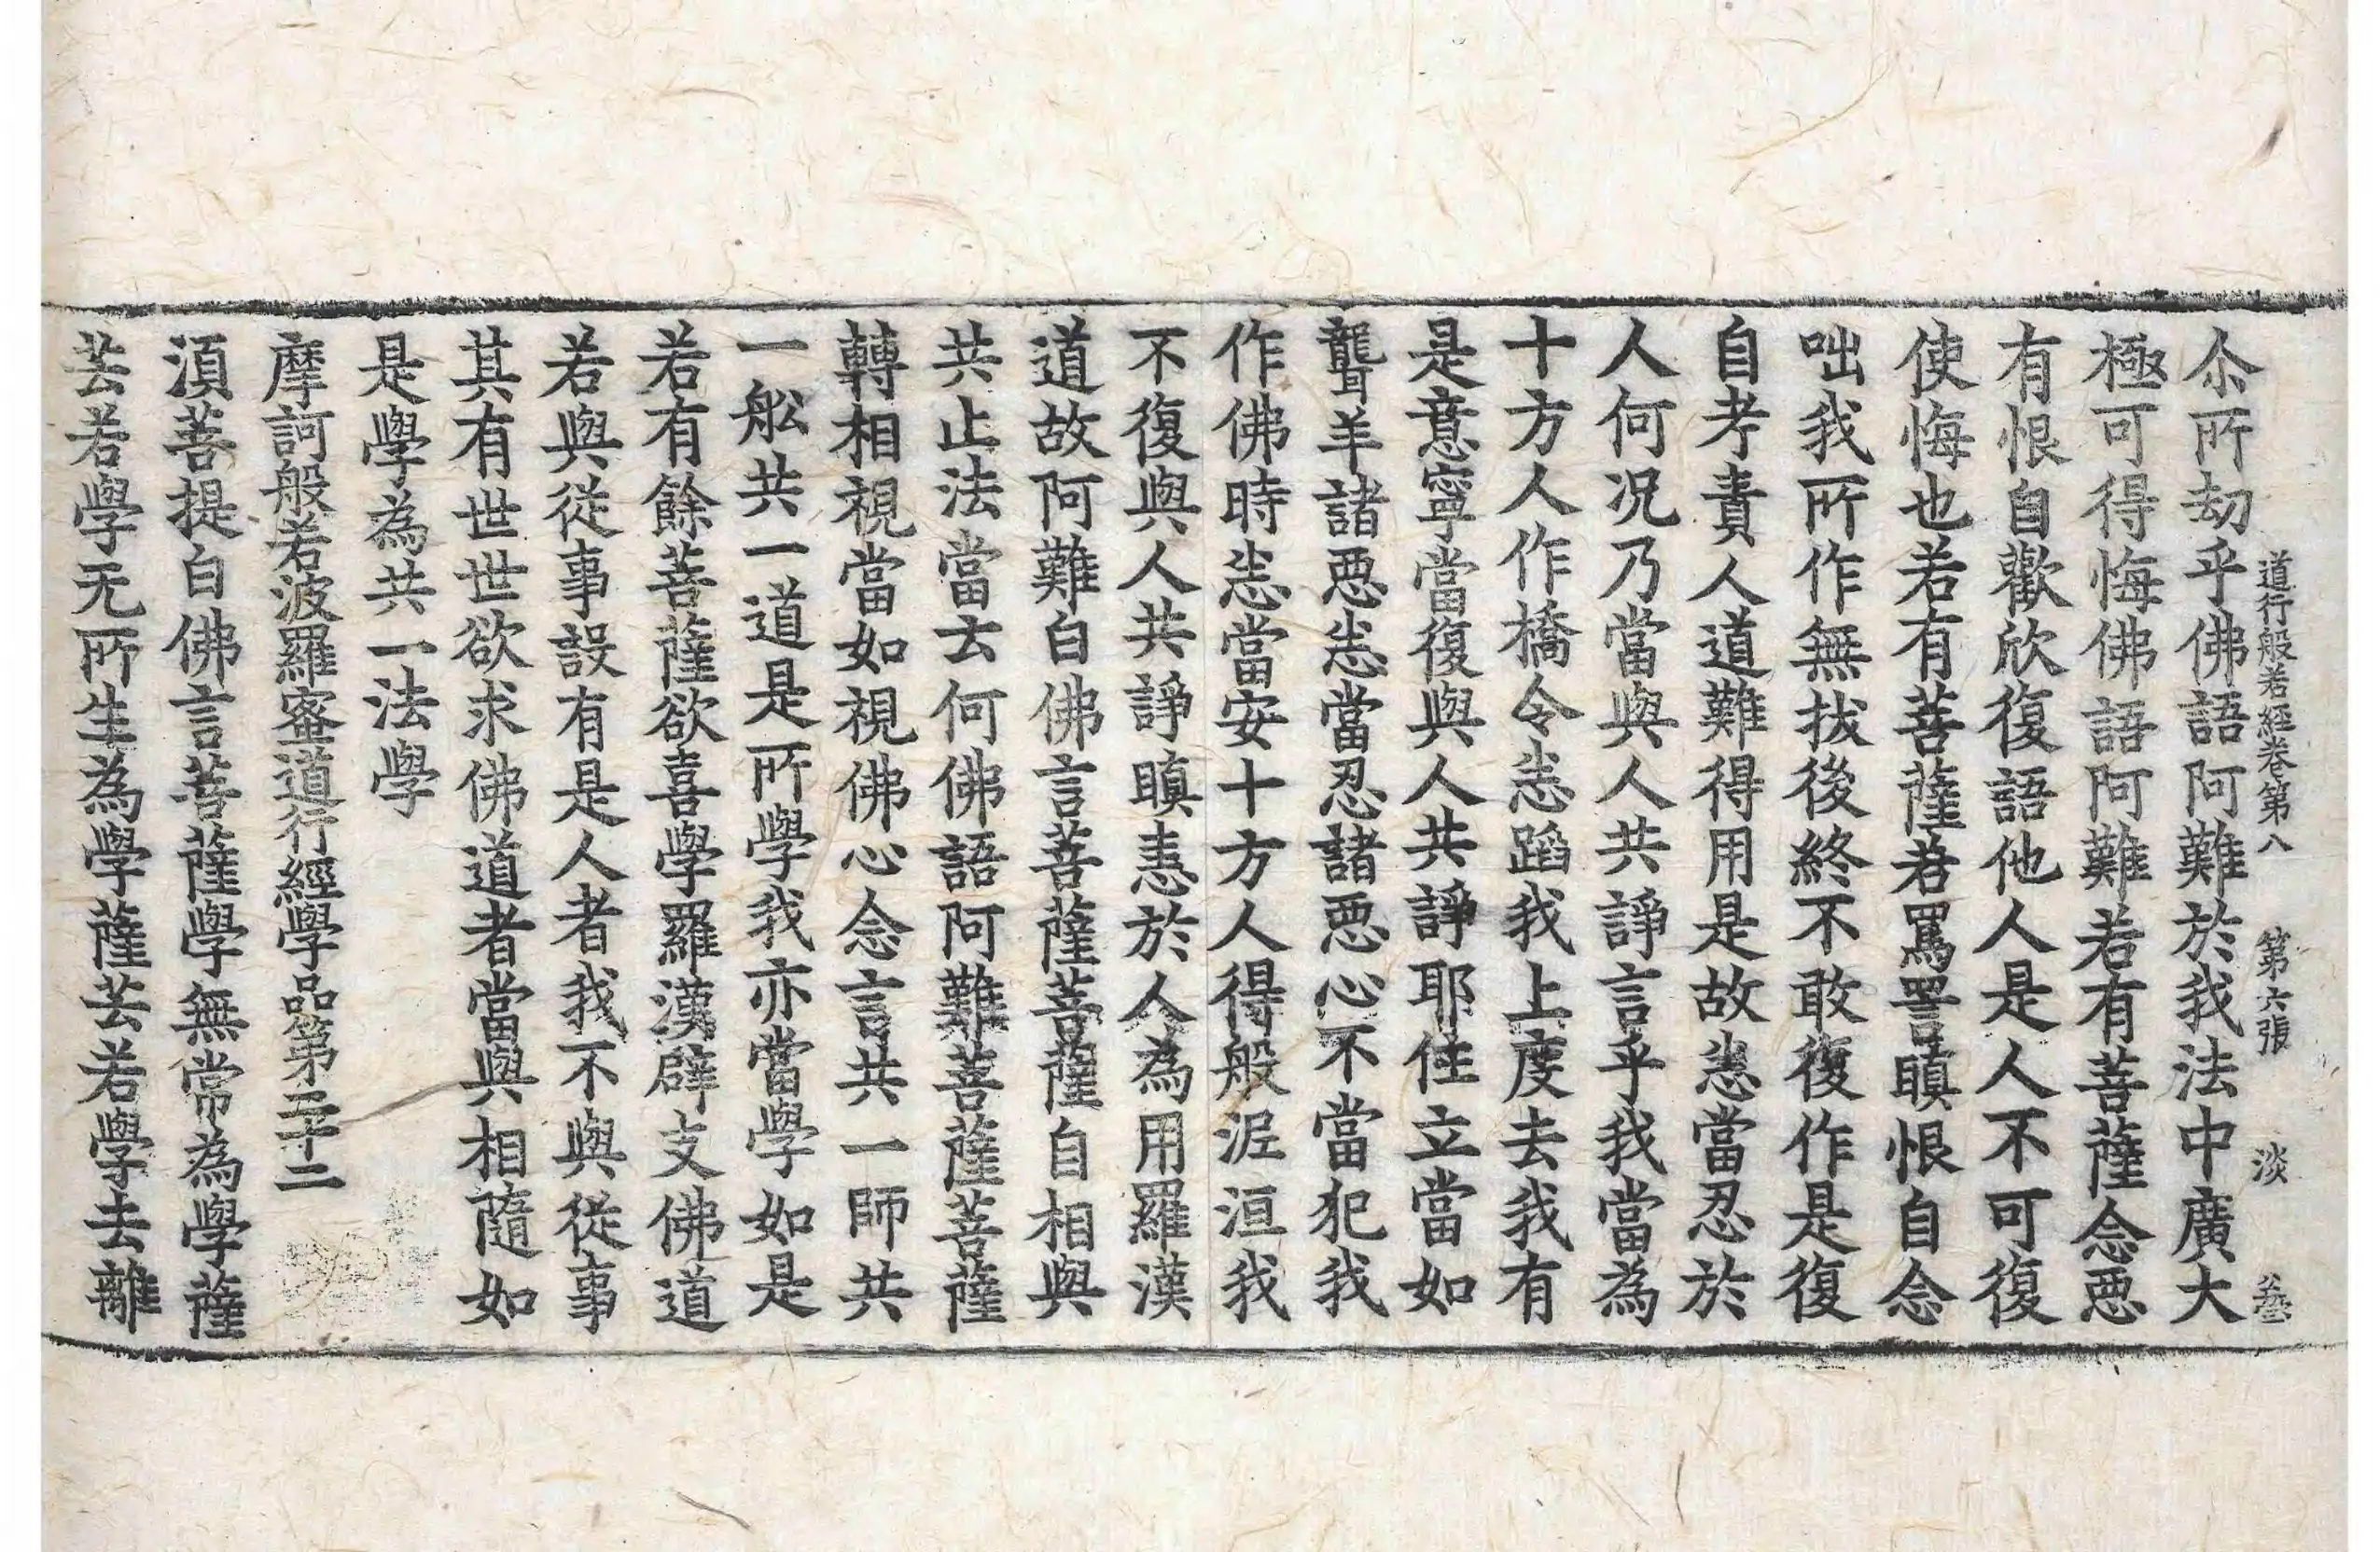 道行般若經卷第八 第六張 淡
尒所劫乎佛語阿難於我法中廣大
極可得悔佛語阿難若有菩薩念惡
有恨自歡欣復語他人是人不可復
使悔也若有菩薩若罵詈瞋恨自念
咄我所作無拔後終不敢復作是復
自考責人道難得用是故恚當忍於
人何況乃當與人共諍言乎我當為
十方人作橋令恚蹈我上度去我有
是意寧當復與人共諍耶住立當如
聾羊諸惡恚當忍諸惡心不當犯我
作佛時恚當安十方人得般泥洹我
不復與人共諍瞋恚於人為用羅漢
道故阿難白佛言菩薩菩薩自相與
共止法當云何佛語阿難菩薩菩薩
轉相視當如視佛心念言共一師共
一舩共一道是所學我亦當學如是
若有餘菩薩欲喜學羅漢辟支佛道
若與從事設有是人者我不與從事
其有世世欲求佛道者當與相隨如
是學為共一法學
摩訶般若波羅蜜道行經學品第二十二
須菩提白佛言菩薩學無常為學薩
芸若學无所生為學薩芸若學去離